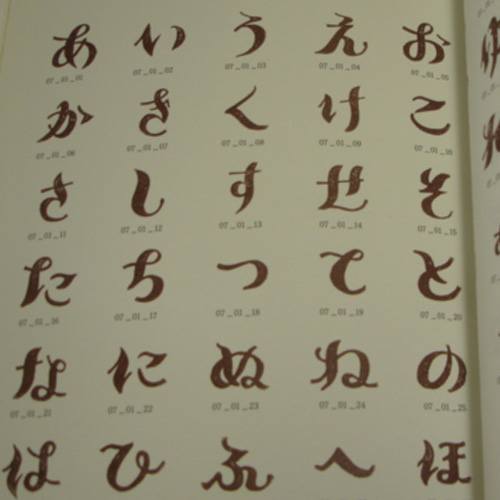 あ い う え お
07_01_01 07_01_02 07_01_03 07_01_04 07_01_05
か き く け こ
07_01_06 07_01_07 07_01_08 07_01_09 07_01_10
さ し す せ そ
07_01_11 07_01_12 07_01_13 07_01_14 07_01_15
た ち つ て と
07_01_16 07_01_17 07_01_18 07_01_19 07_01_20
な に ぬ ね の
07_01_21 07_01_22 07_01_23 07_01_24 07_01_25
は ひ ふ へ ほ